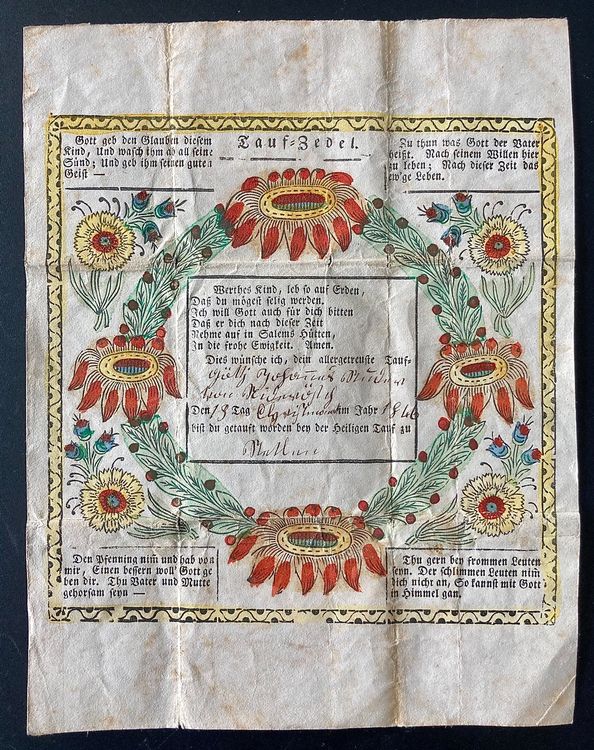 Gott geb den Glauben diesem
Kind, Und wasch ihm ab all seine
Sünd; Und geb ihm seinen guten
Geist —
Tauf-Zedel.
Zu thun was Gott der Vater
heißt. Nach seinem Willen hier
zu leben; Nach dieser Zeit das
ew'ge Leben.
Werthes Kind, leb so auf Erden,
Daß du mögest selig werden.
Ich will Gott auch für dich bitten
Daß er dich nach dieser Zeit
Nehme auf in Salems Hütten,
In die frohe Ewigkeit. Amen.
Dies wünsche ich, dein allergetreuste Tauf-
Götti Johannes Studer
von
Den 18 Tag Christmonat im Jahr 1846
bist du getauft worden bey der Heiligen Tauf zu
Den Pfenning nim̄ und hab von
mir, Einen bessern woll' Gott ge
ben dir. Thu Vater und Mutte
gehorsam seyn —
Thu gern bey frommen Leuten
seyn. Der schlimmen Leuten nim̄
dich nicht an, So kannst mit Gott
in Himmel gan.